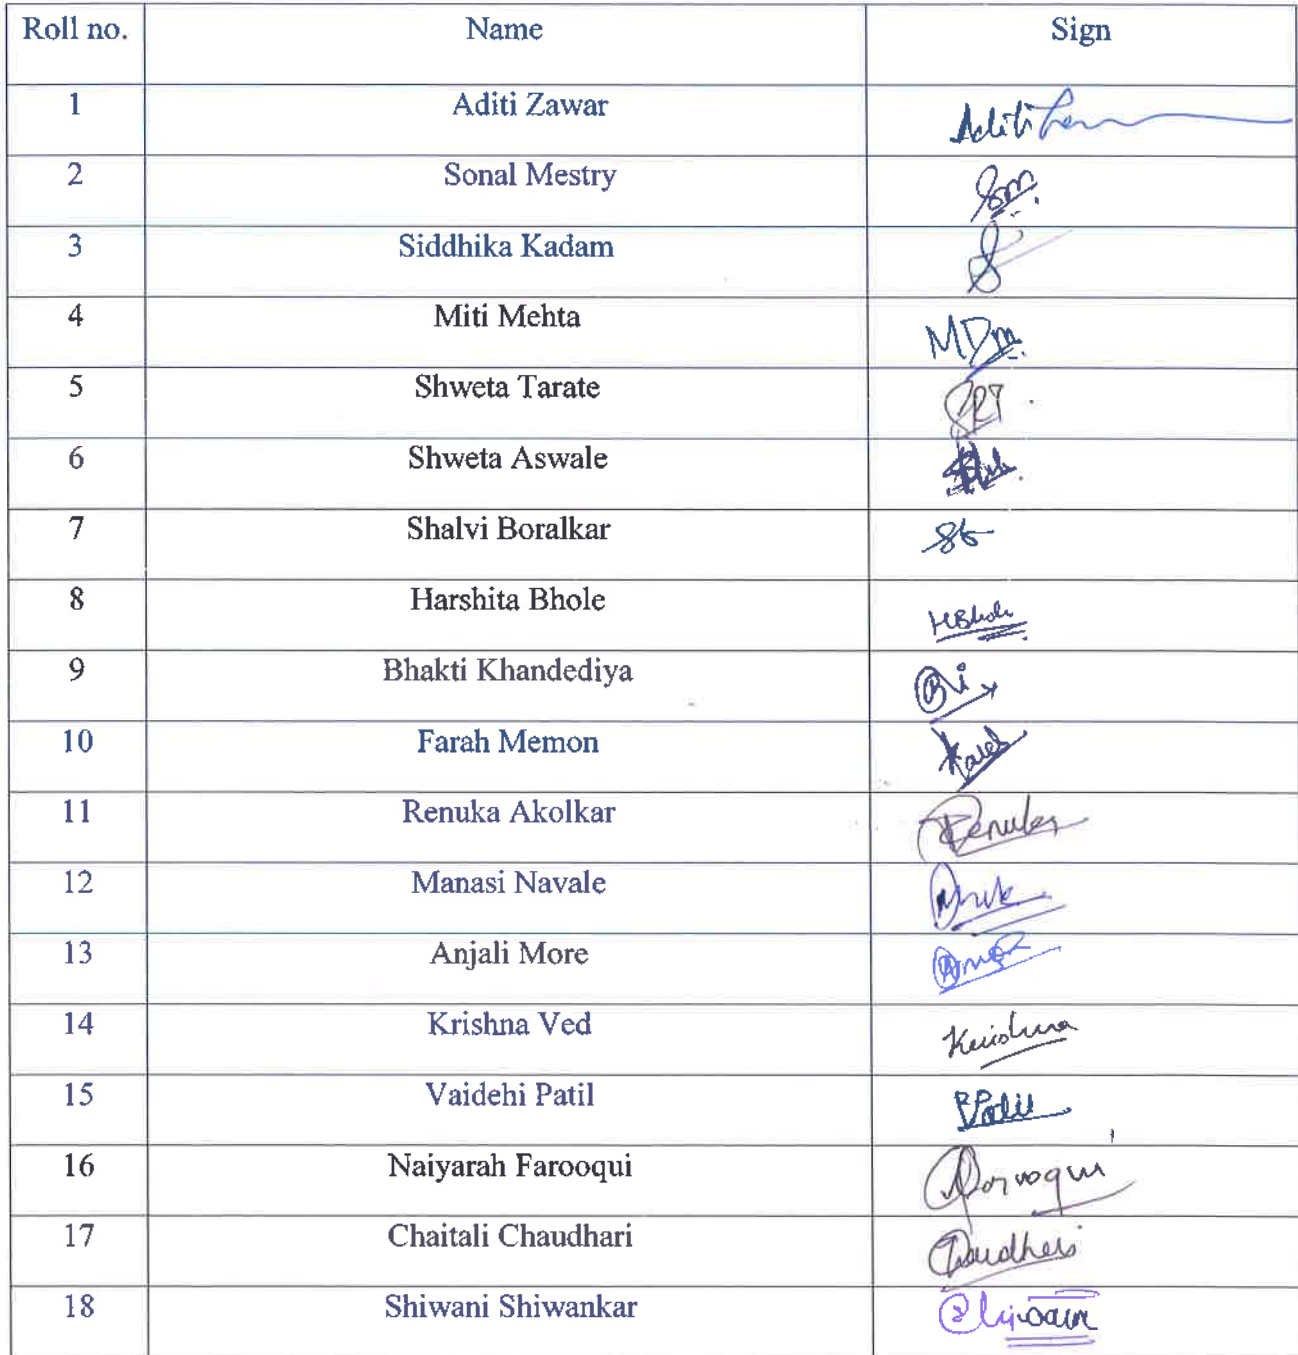 Roll no. Name Sign
1 Aditi Zawar Aditi
2 Sonal Mestry Sm.
3 Siddhika Kadam S
4 Miti Mehta MDm
5 Shweta Tarate SRT.
6 Shweta Aswale
7 Shalvi Boralkar
8 Harshita Bhole HBhole
9 Bhakti Khandediya
10 Farah Memon
11 Renuka Akolkar Renuka
12 Manasi Navale
13 Anjali More
14 Krishna Ved Krishna
15 Vaidehi Patil VPatil
16 Naiyarah Farooqui Farooqui
17 Chaitali Chaudhari
18 Shiwani Shiwankar